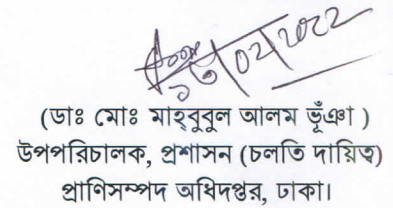 ১৩/০২/২০২২
(ডাঃ মোঃ মাহ্‌বুবুল আলম ভূঁঞা )
উপপরিচালক, প্রশাসন (চলতি দায়িত্ব)
প্রাণিসম্পদ অধিদপ্তর, ঢাকা।